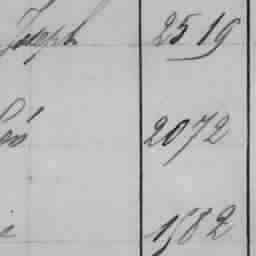 Joseph 2519
Léo 2072
1582